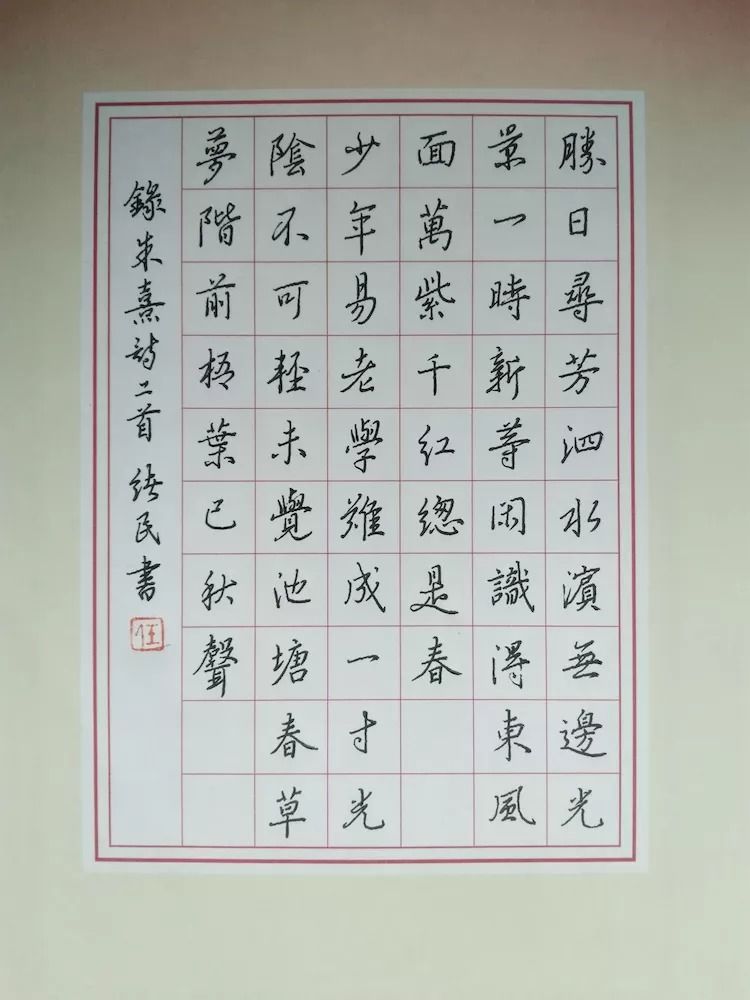 勝日尋芳泗水濱無邊光
景一時新等閑識得東風
面萬紫千紅總是春
少年易老學難成一寸光
陰不可輕未覺池塘春草
夢階前梧葉已秋聲
錄朱熹詩二首 緒民書
伍